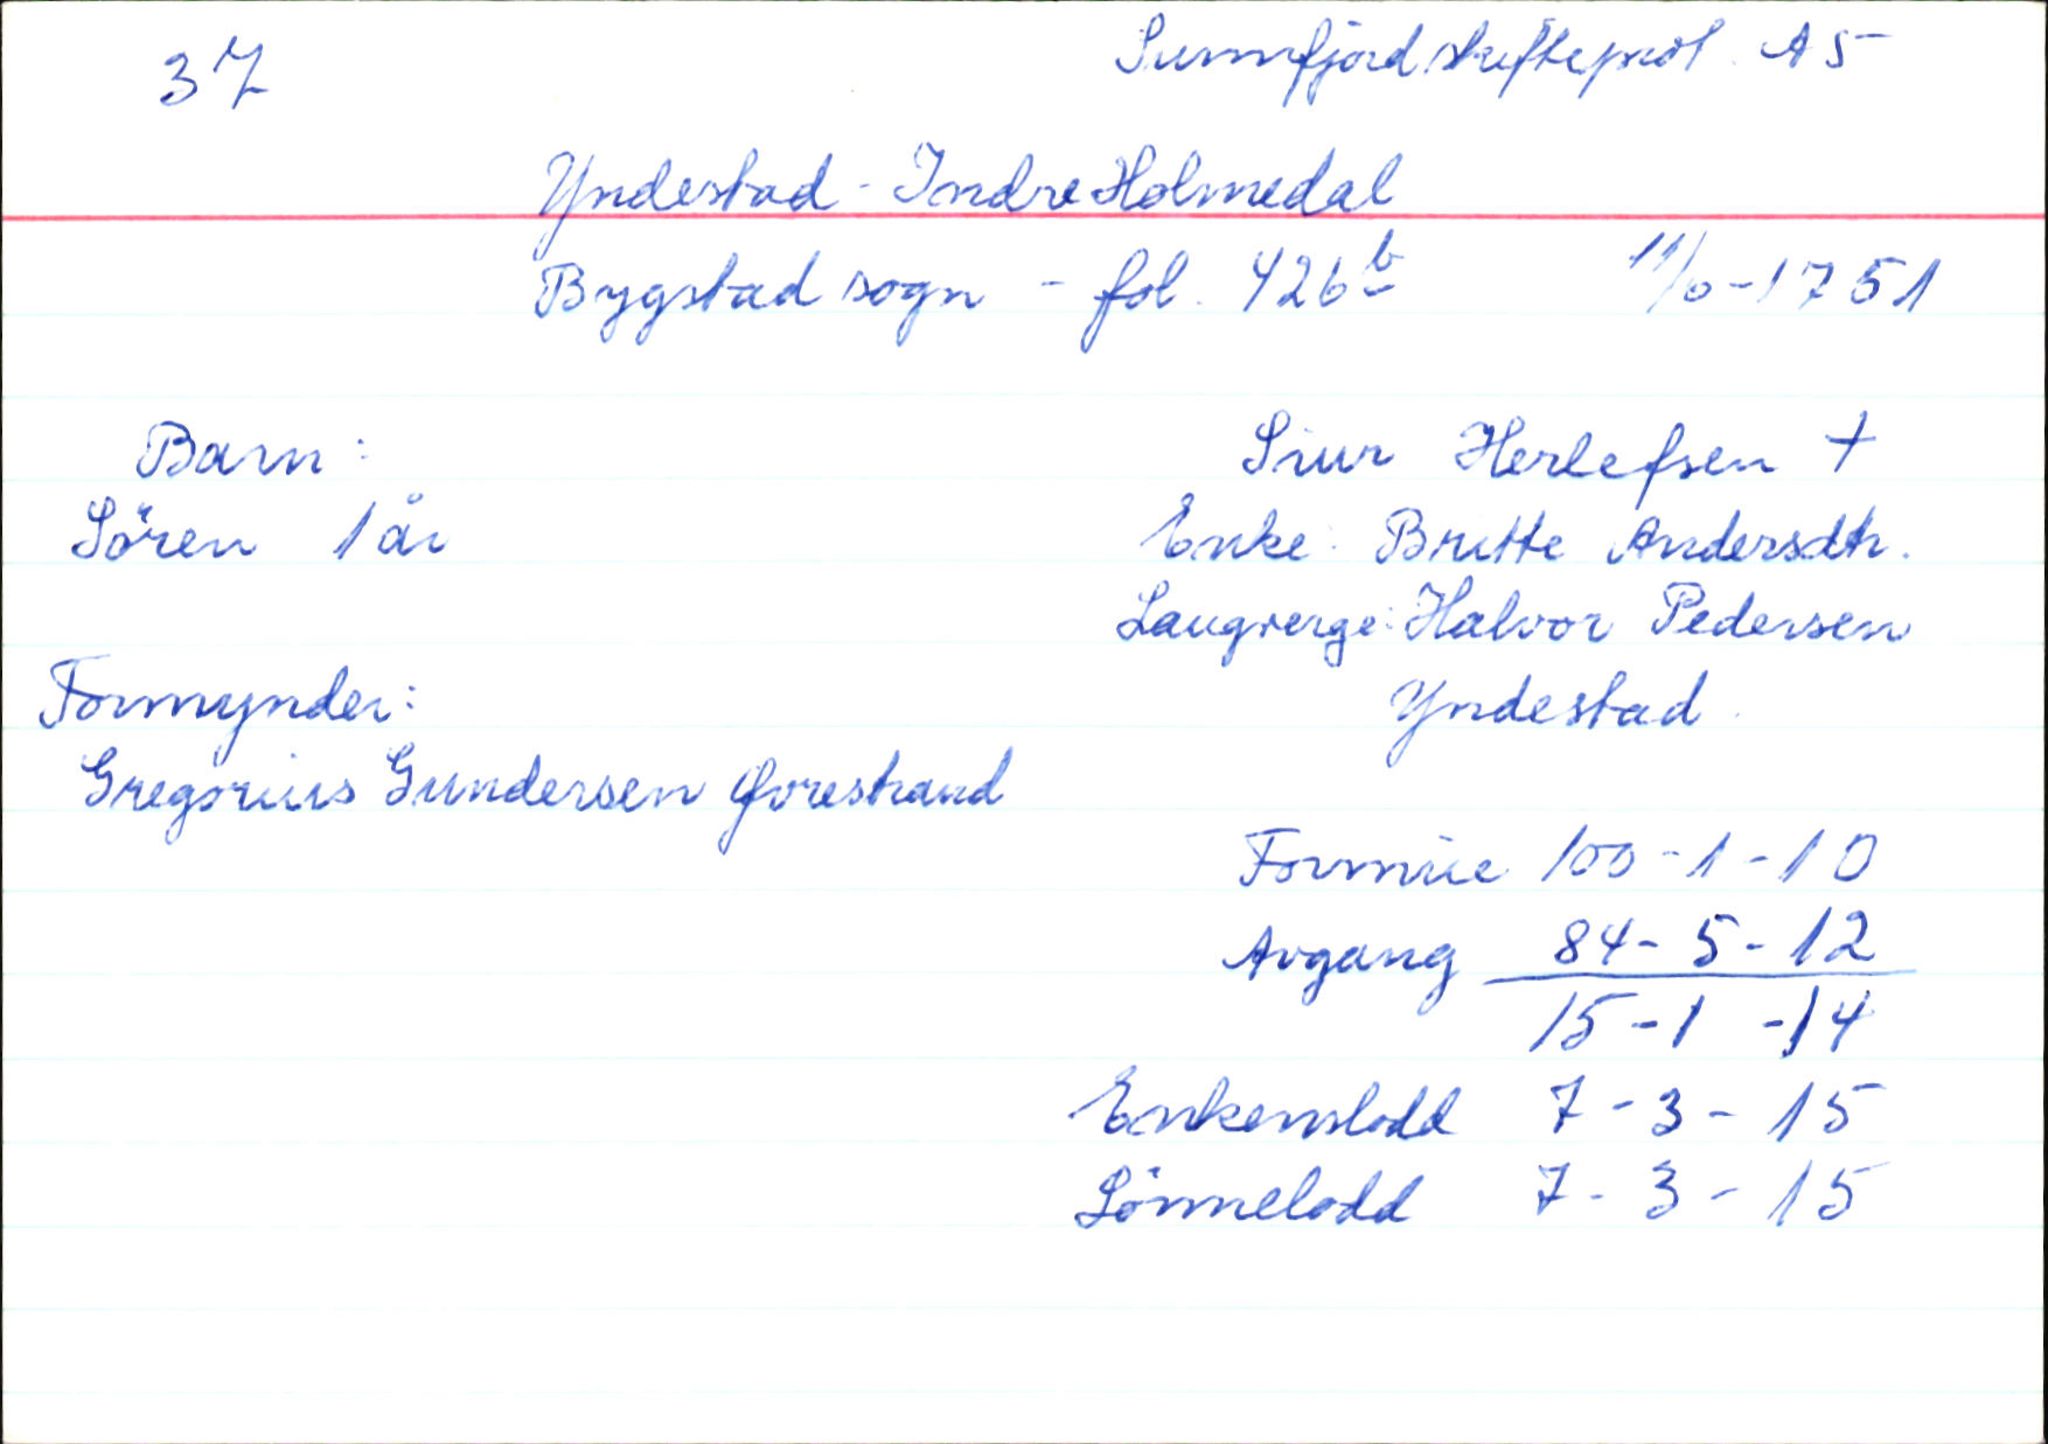 37
Sunnfjord skifteprot. A5
Yndestad - Indre Holmedal
Bygstad sogn - fol. 426b 11/6-1751
Barn:
Sören 1 år
Siur Herlefsen †
Enke: Britte Andersdtr.
Laugverge: Halvor Pedersen
Yndestad.
Formynder:
Gregorius Gundersen Qvrestrand
Formue 100-1-10
Avgang 84-5-12
15-1-14
Enkenslodd 7-3-15
Sönnelodd 7-3-15